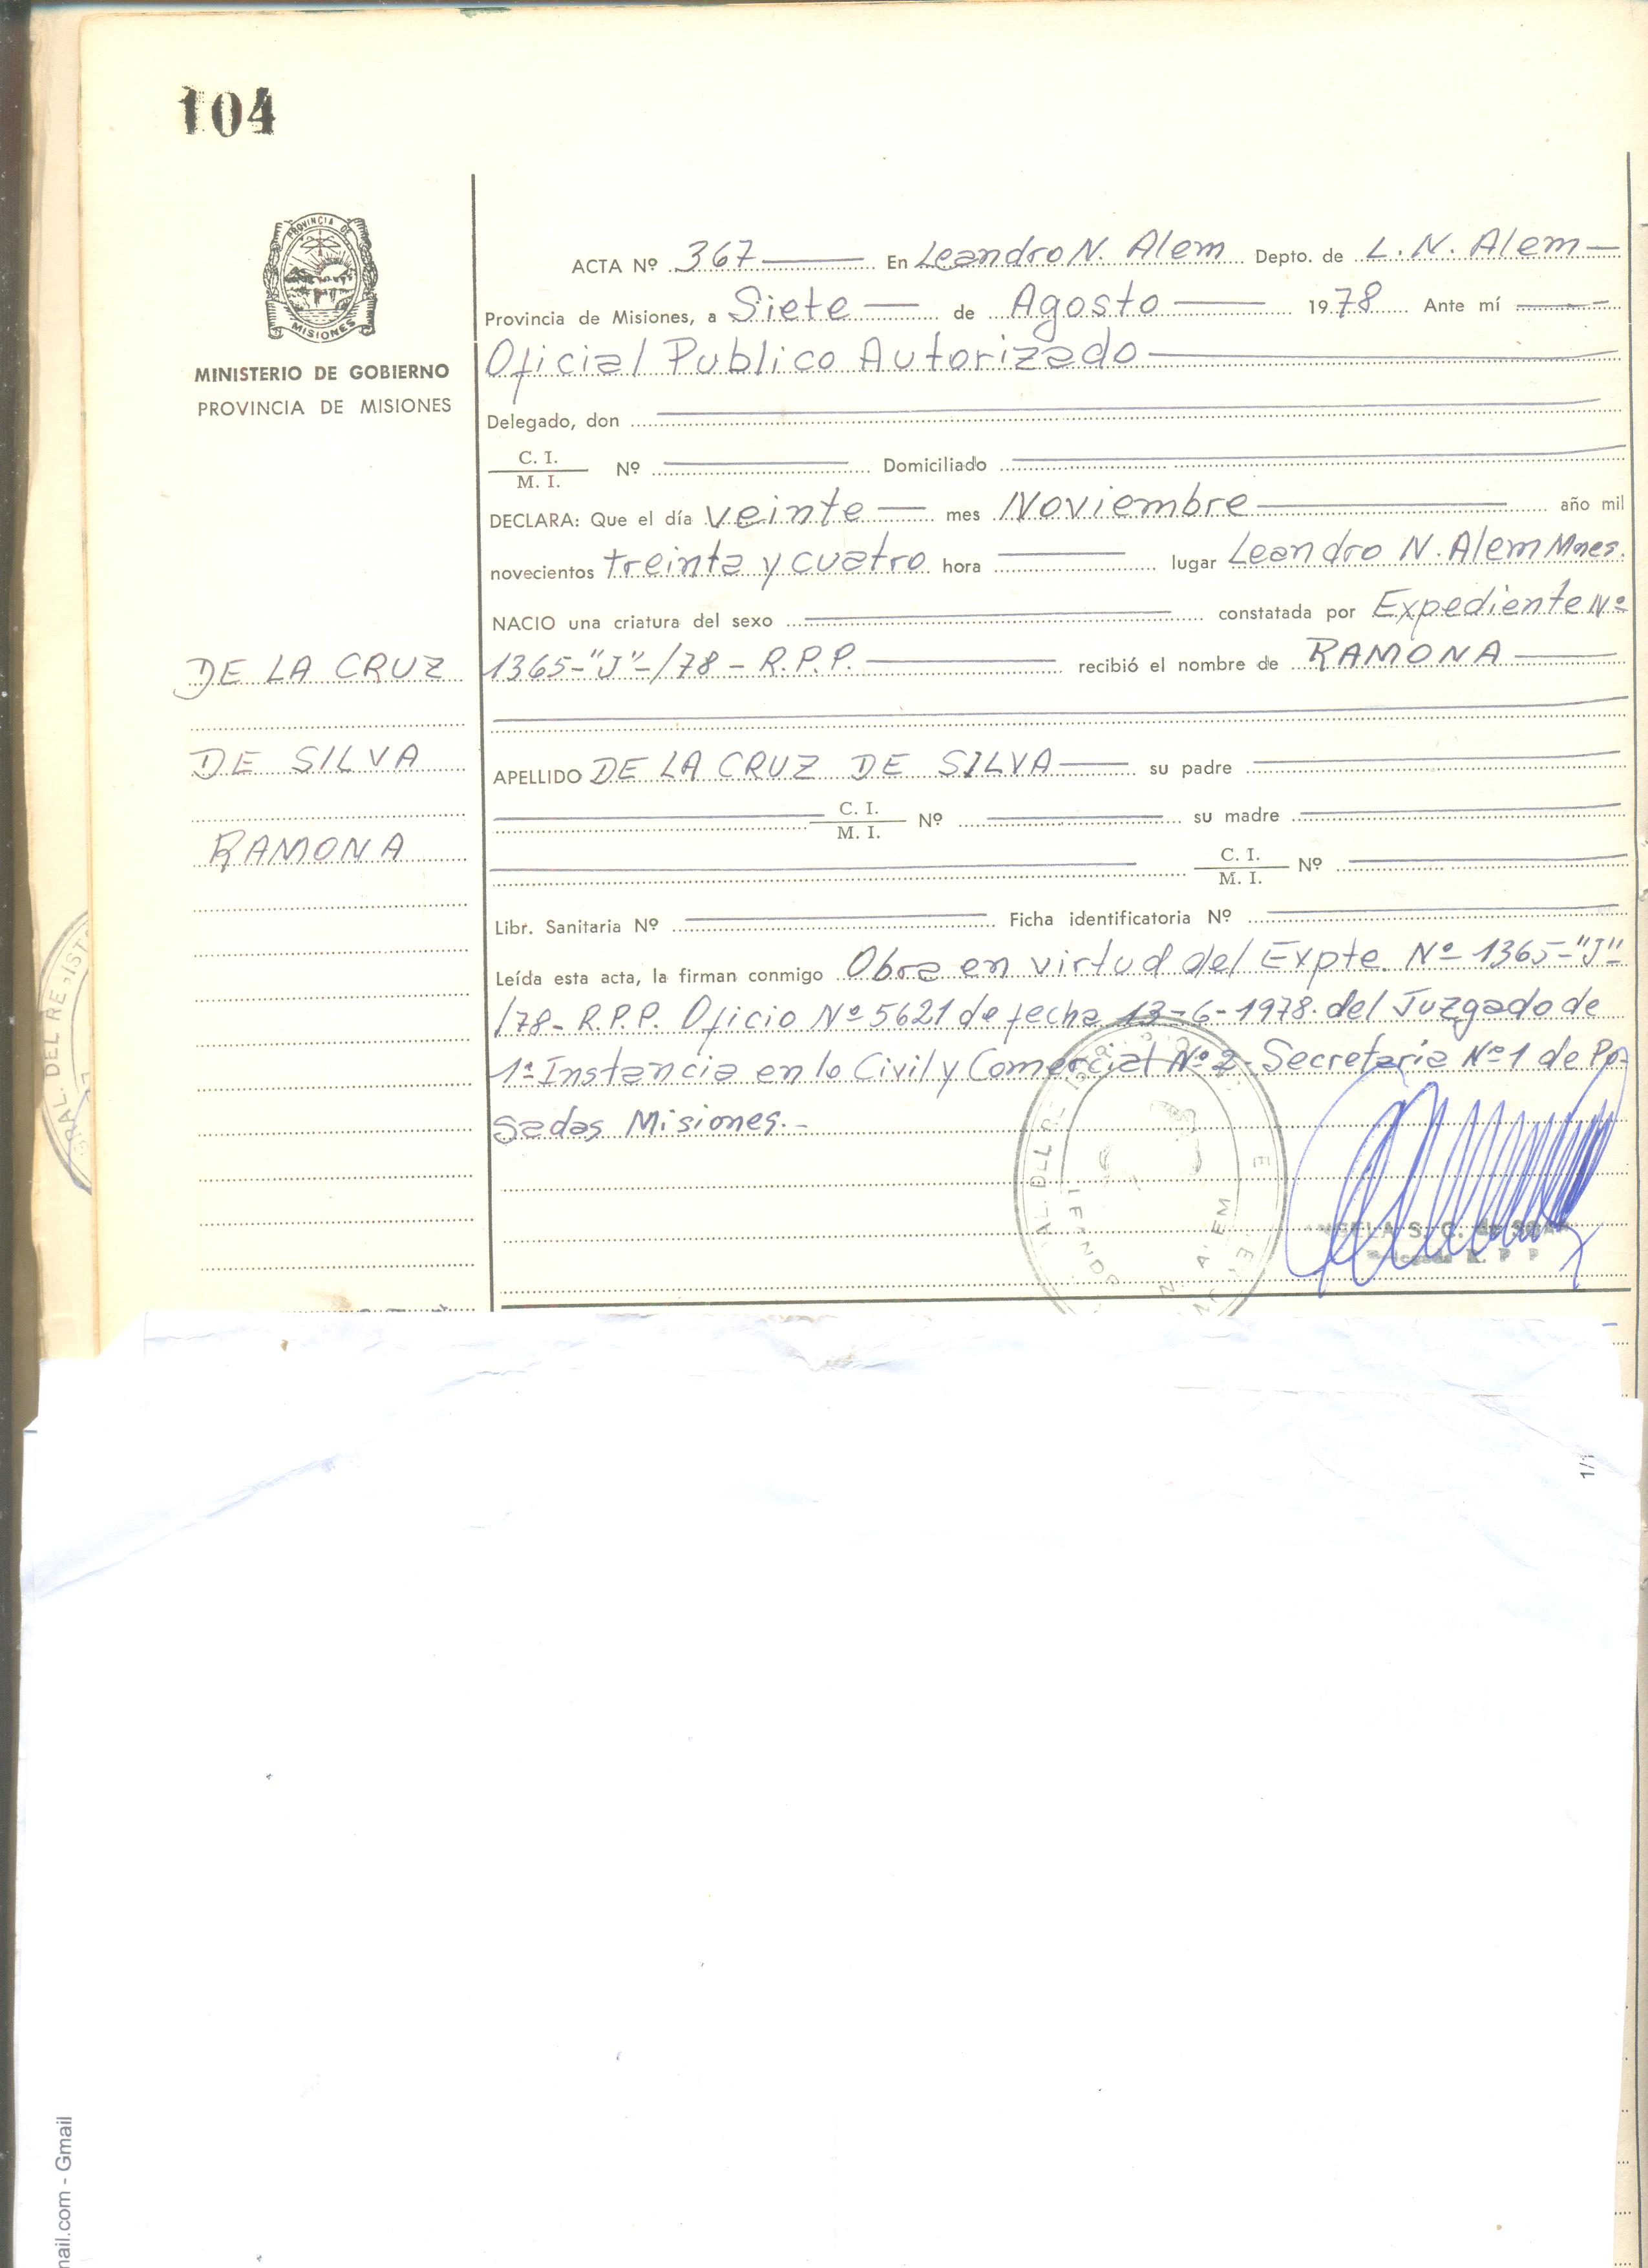 104
PROVINCIA DE
MISIONES
MINISTERIO DE GOBIERNO
PROVINCIA DE MISIONES
DE LA CRUZ
DE SILVA
RAMONA
ACTA Nº 367 En Leandro N. Alem Depto. de L. N. Alem
Provincia de Misiones, a Siete de Agosto 1978 Ante mí
Oficial Publico Autorizado
Delegado, don
C. I.
M. I. Nº Domiciliado
DECLARA: Que el día veinte mes Noviembre año mil
novecientos treinta y cuatro hora lugar Leandro N. Alem Mnes.
NACIO una criatura del sexo constatada por Expediente Nº
1365-"J"-/78 - R.P.P. recibió el nombre de RAMONA
APELLIDO DE LA CRUZ DE SILVA su padre
C. I.
M. I. Nº su madre
C. I.
M. I. Nº
Libr. Sanitaria Nº Ficha identificatoria Nº
Leída esta acta, la firman conmigo Obra en virtud del Expte. Nº 1365-"J"
/78- R.P.P. Oficio Nº 5621 de fecha 13-6-1978. del Juzgado de
1ª Instancia en lo Civil y Comercial Nº 2- Secretaria Nº 1 de Po-
sadas Misiones.-
GRAL. DEL
S. C. de
R. P P
1/1
mail.com - Gmail